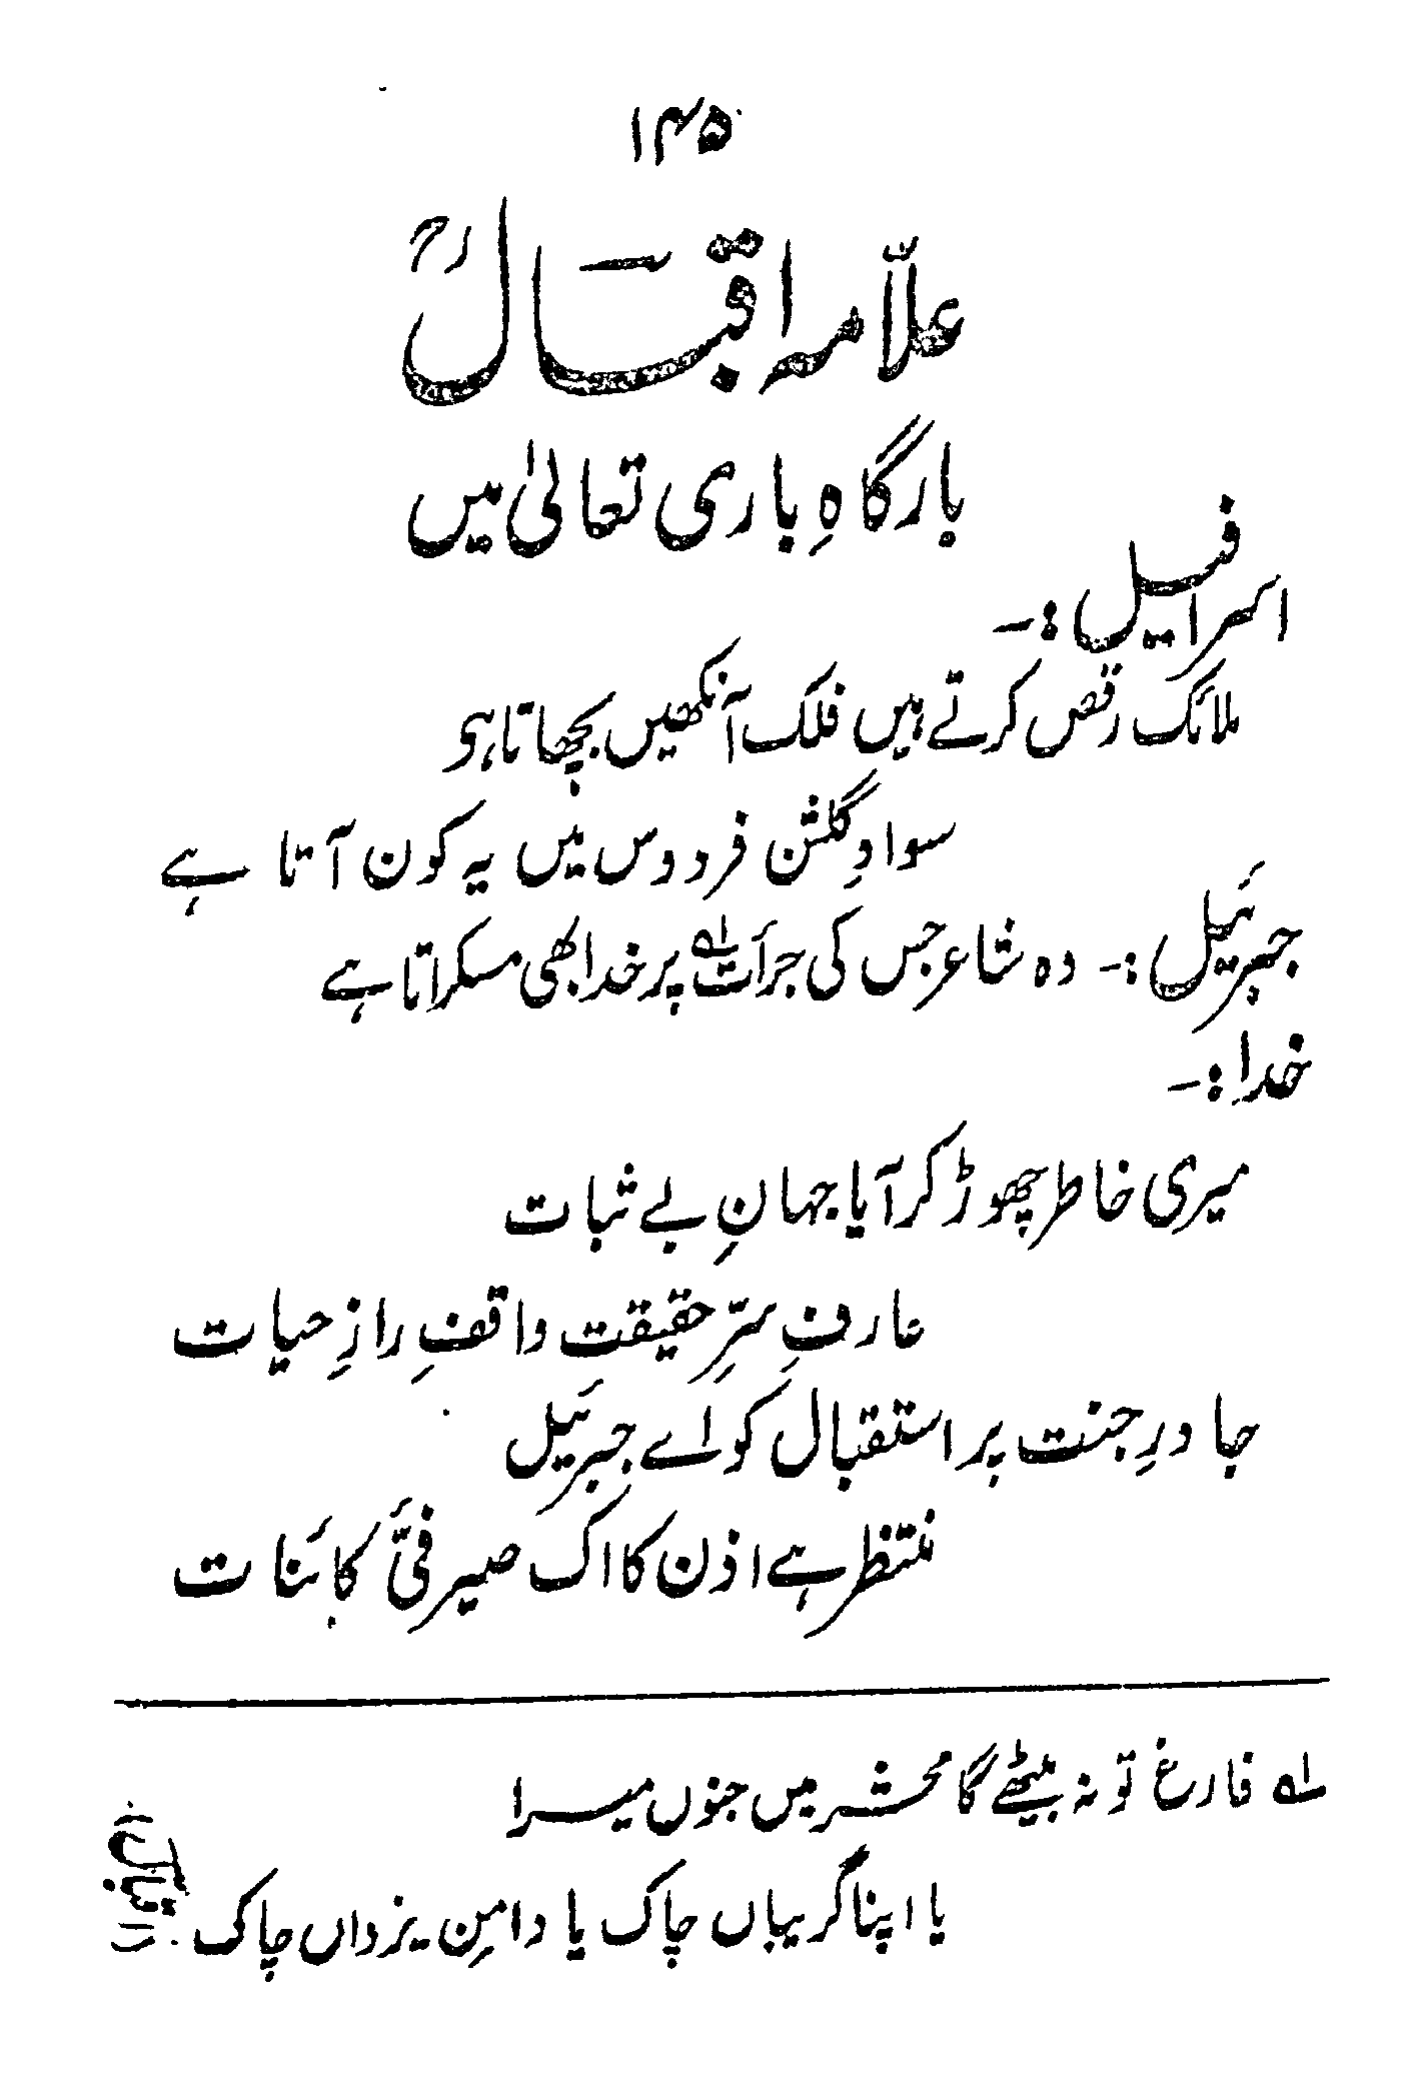 ۱۴۵
علّامہ اقبالؒ
بارگاہِ باری تعالیٰ میں
اسرافیل :۔
ملائک رقص کرتے ہیں فلک آنکھیں بچھاتا ہی
سوادِ گلشن فردوس میں یہ کون آتا ہے
جبرئیل :۔ وہ شاعر جس کی جرأت ؎۱ پر خدا بھی مسکراتا ہے
خدا :۔
میری خاطر چھوڑ کر آیا جہانِ بے ثبات
عارفِ سرِّ حقیقت واقفِ رازِ حیات
جا درِ جنت پر استقبال کو اے جبرئیل
منتظر ہے اذن کا اک صیرفیٔ کائنات
؎۱ فارغ تو نہ بیٹھے گا محشر میں جنوں میرا
یا اپنا گریباں چاک یا دامنِ یزداں چاک (اقبال)